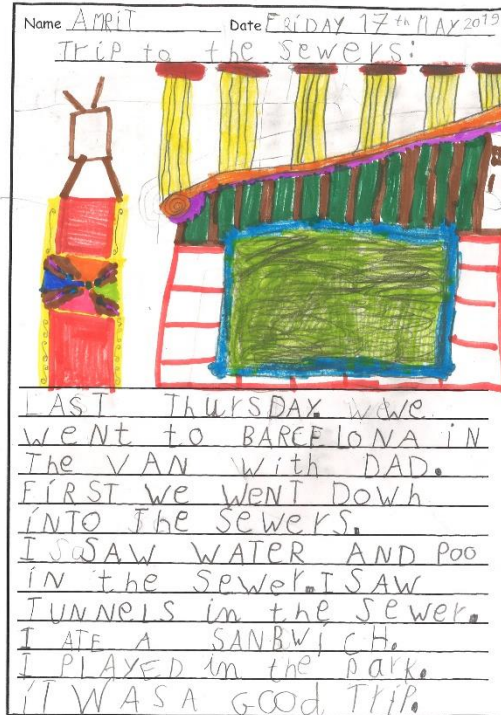 Name AMRIT Date FRIDAY 17th MAY 2019
Trip to the Sewers:
LAST ThurSDAY. wewe
went to BARCELONA iN
The VAN with DAD.
FIRST we WENT Down
iNTO The Sewers.
I SaSAW WATER AND Poo
iN the Sewer.I SAW
TUNNELS in the Sewer.
I ATE A SANBWiCH.
I PLAYED in the park.
iT WASA GOOd Trip.